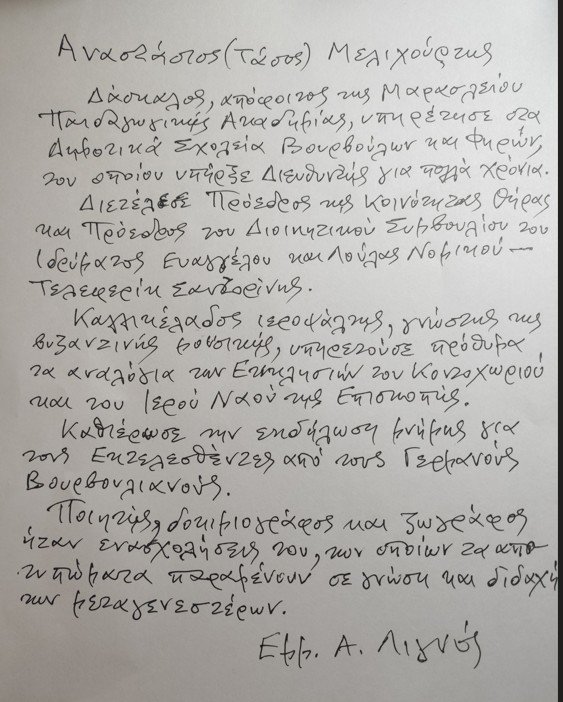 Αναστάσιος (Τάσος) Μελιχούρτης
Δάσκαλος, απόφοιτος της Μαρασλείου
Παιδαγωγικής Ακαδημίας, υπηρέτησε στα
Δημοτικά Σχολεία Βουρβούλων και Φηρών,
του οποίου υπήρξε Διευθυντής για πολλά χρόνια.
Διετέλεσε Πρόεδρος της Κοινότητας Θήρας
και Πρόεδρος του Διοικητικού Συμβουλίου του
Ιδρύματος Ευαγγέλου και Λούλας Νομικού –
Τελεφερίκ Σαντορίνης.
Καλλικέλαδος ιεροψάλτης, γνώστης της
βυζαντινής μουσικής, υπηρετούσε πρόθυμα
τα αναλόγια των Εκκλησιών του Κοντοχωριού
και του Ιερού Ναού της Επισκοπής.
Καθιέρωσε την εκδήλωση μνήμης για
τους Εκτελεσθέντες από τους Γερμανούς
Βουρβουλιανούς.
Ποιητής, δοκιμιογράφος και ζωγράφος
ήταν ενασχολήσεις του, των οποίων τα απο-
τυπώματα παραμένουν σε γνώση και διδαχή
των μεταγενεστέρων.
Εμμ. Α. Λιγνός